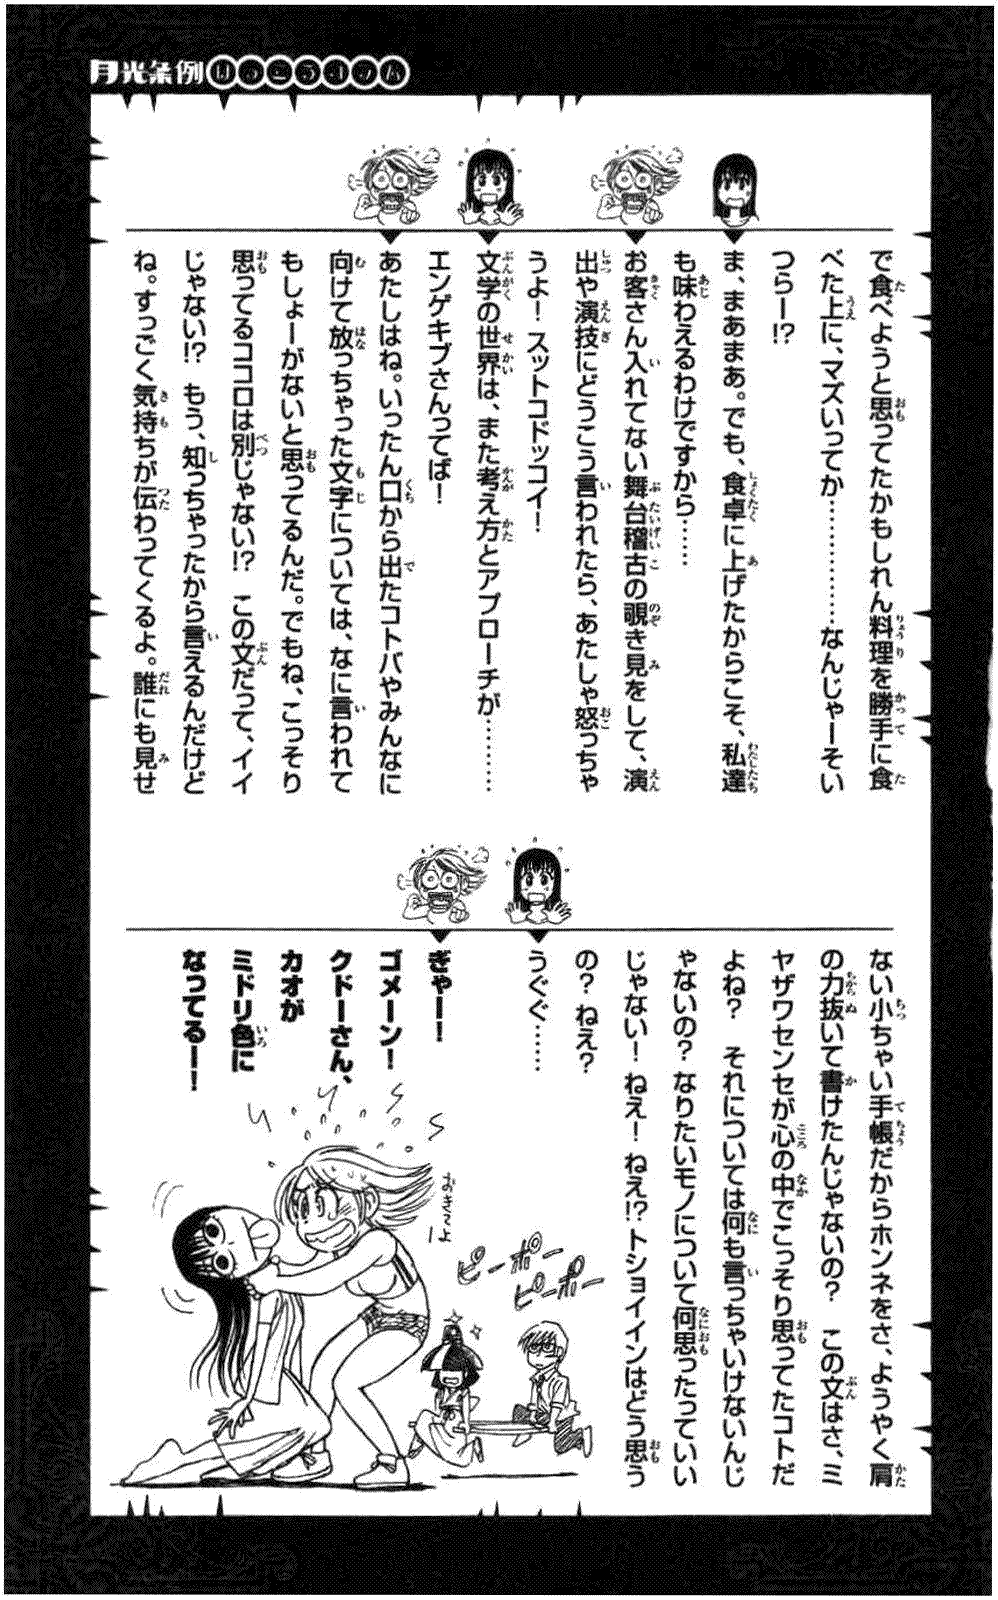 月光条例
で食べようと思ってたかもしれん料理を勝手に食
べた上に、マズいってか…………なんじゃーそい
つらー!?
ま、まあまあ。でも、食卓に上げたからこそ、私達
も味わえるわけですから……
お客さん入れてない舞台稽古の覗き見をして、演
出や演技にどうこう言われたら、あたしゃ怒っちゃ
うよ！スットコドッコイ！
文学の世界は、また考え方とアプローチが…………
エンゲキブさんってば！
あたしはね。いったん口から出たコトバやみんなに
向けて放っちゃった文字については、なに言われて
もしょーがないと思ってるんだ。でもね、こっそり
思ってるココロは別じゃない!?　この文だって、イイ
じゃない!?　もう、知っちゃったから言えるんだけど
ね。すっごく気持ちが伝わってくるよ。誰にも見せ
ない小ちゃい手帳だからホンネをさ、ようやく肩
の力抜いて書けたんじゃないの？　この文はさ、ミ
ヤザワセンセが心の中でこっそり思ってたコトだ
よね？　それについては何も言っちゃいけないんじ
ゃないの？なりたいモノについて何思ったっていい
じゃない！ねえ！ねえ!?トショイインはどう思う
の？ねえ？
うぐぐ……
ぎゃー！
ゴメーン！
クドーさん、
カオが
ミドリ色に
なってるー！
おきてよー
ピーポー
ピーポー